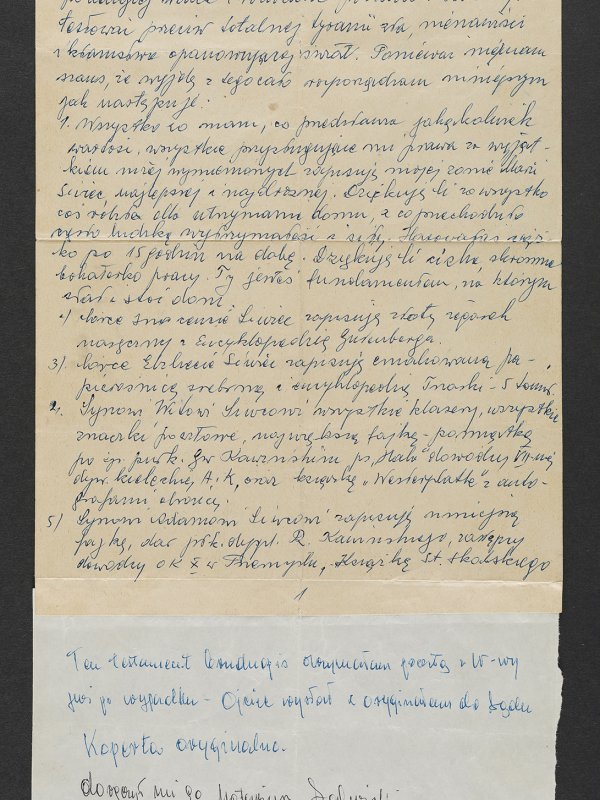 testowi przeciw totalnej tyranii zła, nienawiści
i kłamstwa opanowującej świat. Ponieważ nie mam
szans, że wyjdę z tego cało rozporządzam niniejszym
jak następuje:
1. Wszystko co mam, co przedstawia jakąkolwiek
wartość, wszystkie przysługujące mi prawa za wyjąt-
kiem niżej wymienionych zapisuję mojej żonie Marii
Siwiec najlepszej i najdroższej. Dziękuję Ci za wszystko
coś robiła dla utrzymania domu, a co przechodziło
często ludzką wytrzymałość i siłę. Harowałaś cięż-
ko po 15 godzin na dobę. Dziękuję Ci cicha skromna
bohaterko pracy. Ty jesteś fundamentem, na którym
stał i stoi dom.
2) Córce Innocencie Siwiec zapisuję złoty zegarek
naręczny i Encyklopedię Gutenberga.
3) Córce Elżbiecie Siwiec zapisuję emaliowaną pa-
pierośnicę srebrną i encyklopedię Trzaski - 5 tomów.
4. Synowi Witowi Siwcowi wszystkie klasery, wszystkie
znaczki pocztowe, największą fajkę - pamiątkę
po śp. ppułk. Kawińskim ps. dowódcy VII-mej
dyw. kieleckiej A.K, oraz książkę „Westerplatte" z auto-
grafami obrońcy.
5) Synowi Adamowi Siwcowi zapisuję mniejszą
fajkę, dar płk. dypl. R. Kawińskiego, zastępcy
dowódcy OK X w Przemyślu, Książkę St. Skalskiego
1
Ten testament londyński otrzymałam pocztą z W-wy
już po wypadku - Ojciec wysłał z oryginałem do Sądu
Koperta oryginalna.
doręczył mi go